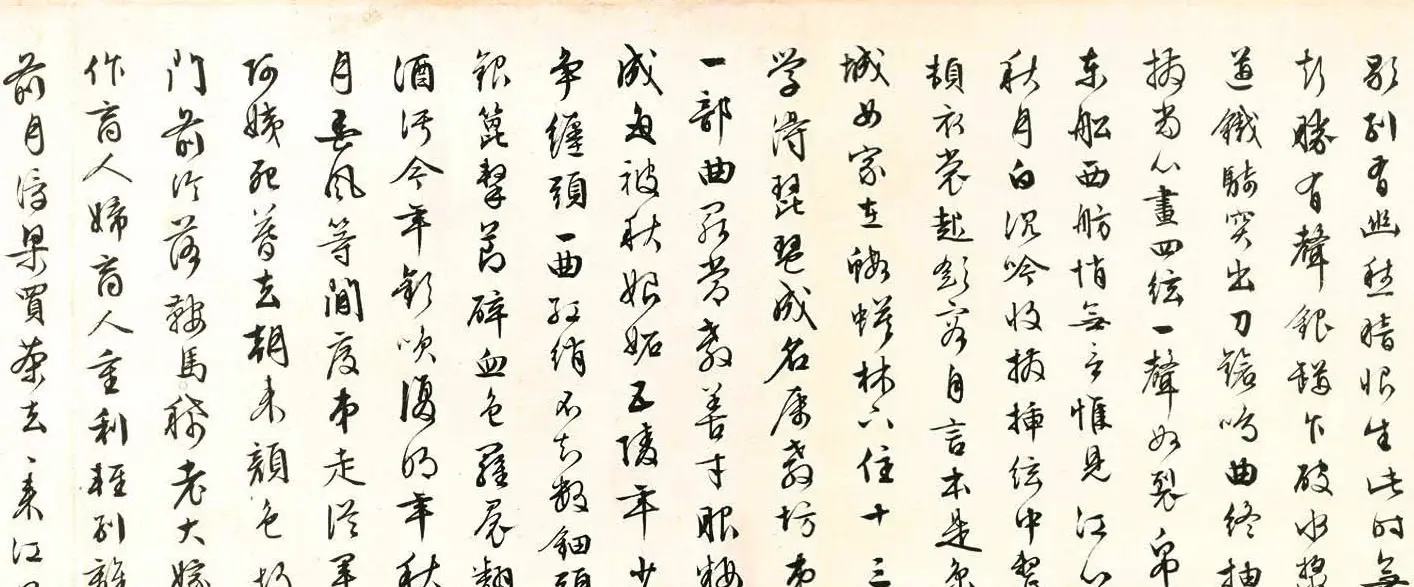 歇别有幽愁暗恨生此時無
聲勝有聲銀瓶乍破水漿
迸鐵騎突出刀鎗鳴曲終抽
撥當心畫四絃一聲如裂帛
東船西舫悄無言惟見江心
秋月白沉吟收撥插絃中整
頓衣裳起斂容自言本是京
城女家在蝦蟆林下住十三
学得琵琶成名属教坊第
一部曲罷常教善才服粧
成每被秋娘妬五陵年少
争纏頭一曲紅綃不知數鈿頭
銀篦擊節碎血色羅裙翻
酒污今年歡笑復明年秋
月春風等閒度弟走從軍
阿姨死暮去朝来顔色故
門前冷落鞍馬稀老大嫁
作商人婦商人重利輕别離
前月浮梁買茶去々来江